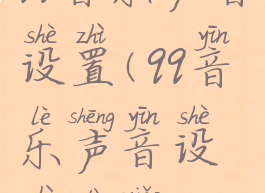 shè zhì yīn
设置(99音
lè shēng yīn shè
乐声音设